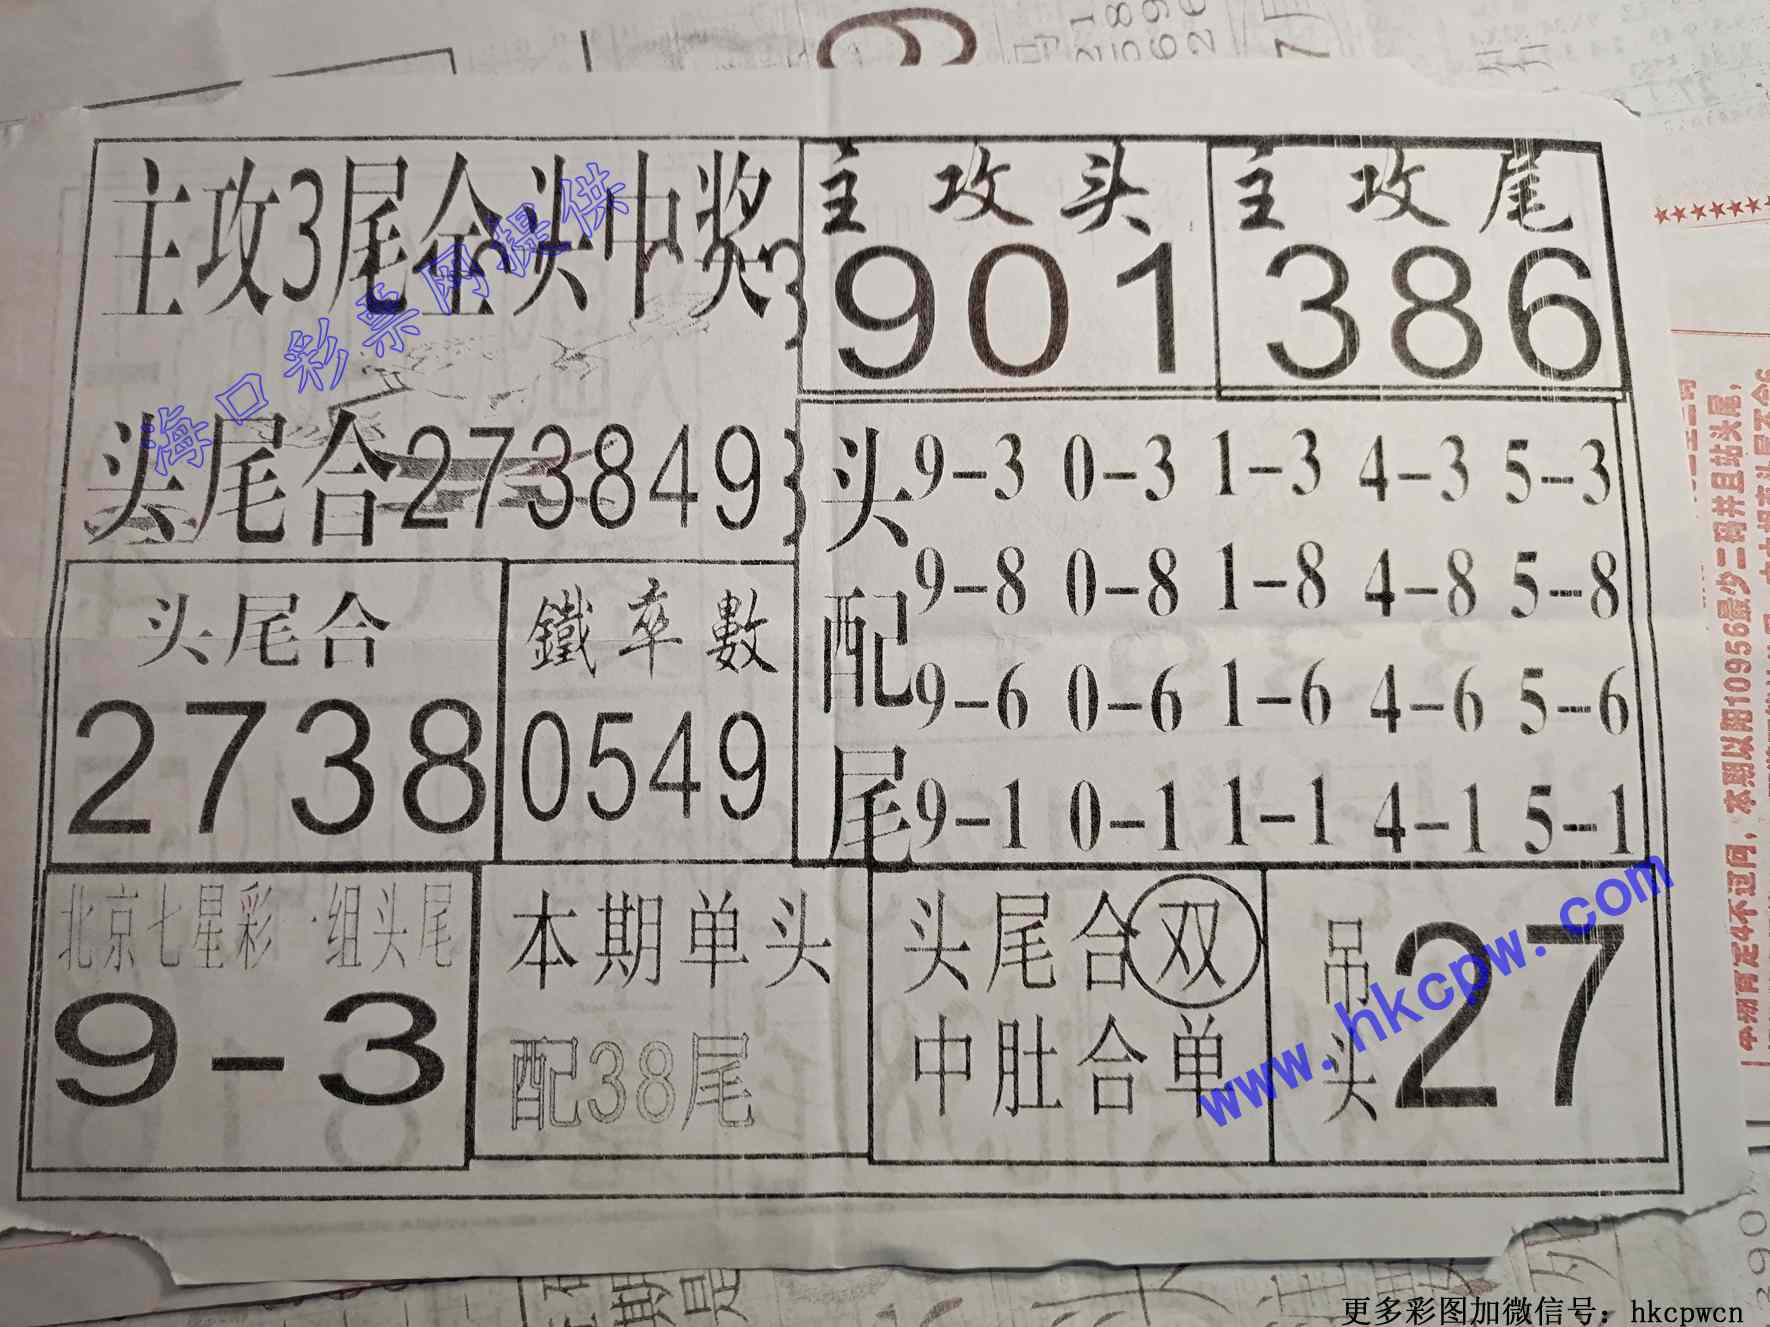 主攻3尾全头中奖
头尾合273849
主攻头
901
主攻尾
386
头配尾
9-3 0-3 1-3 4-3 5-3
9-8 0-8 1-8 4-8 5-8
9-6 0-6 1-6 4-6 5-6
9-1 0-1 1-1 4-1 5-1
头尾合
2738
鐵卒數
0549
北京七星彩一组头尾
9-3
本期单头
配38尾
头尾合双
中肚合单
吊头27
海口彩票网提供
www.hkcpw.com
更多彩图加微信号：hkcpwcn